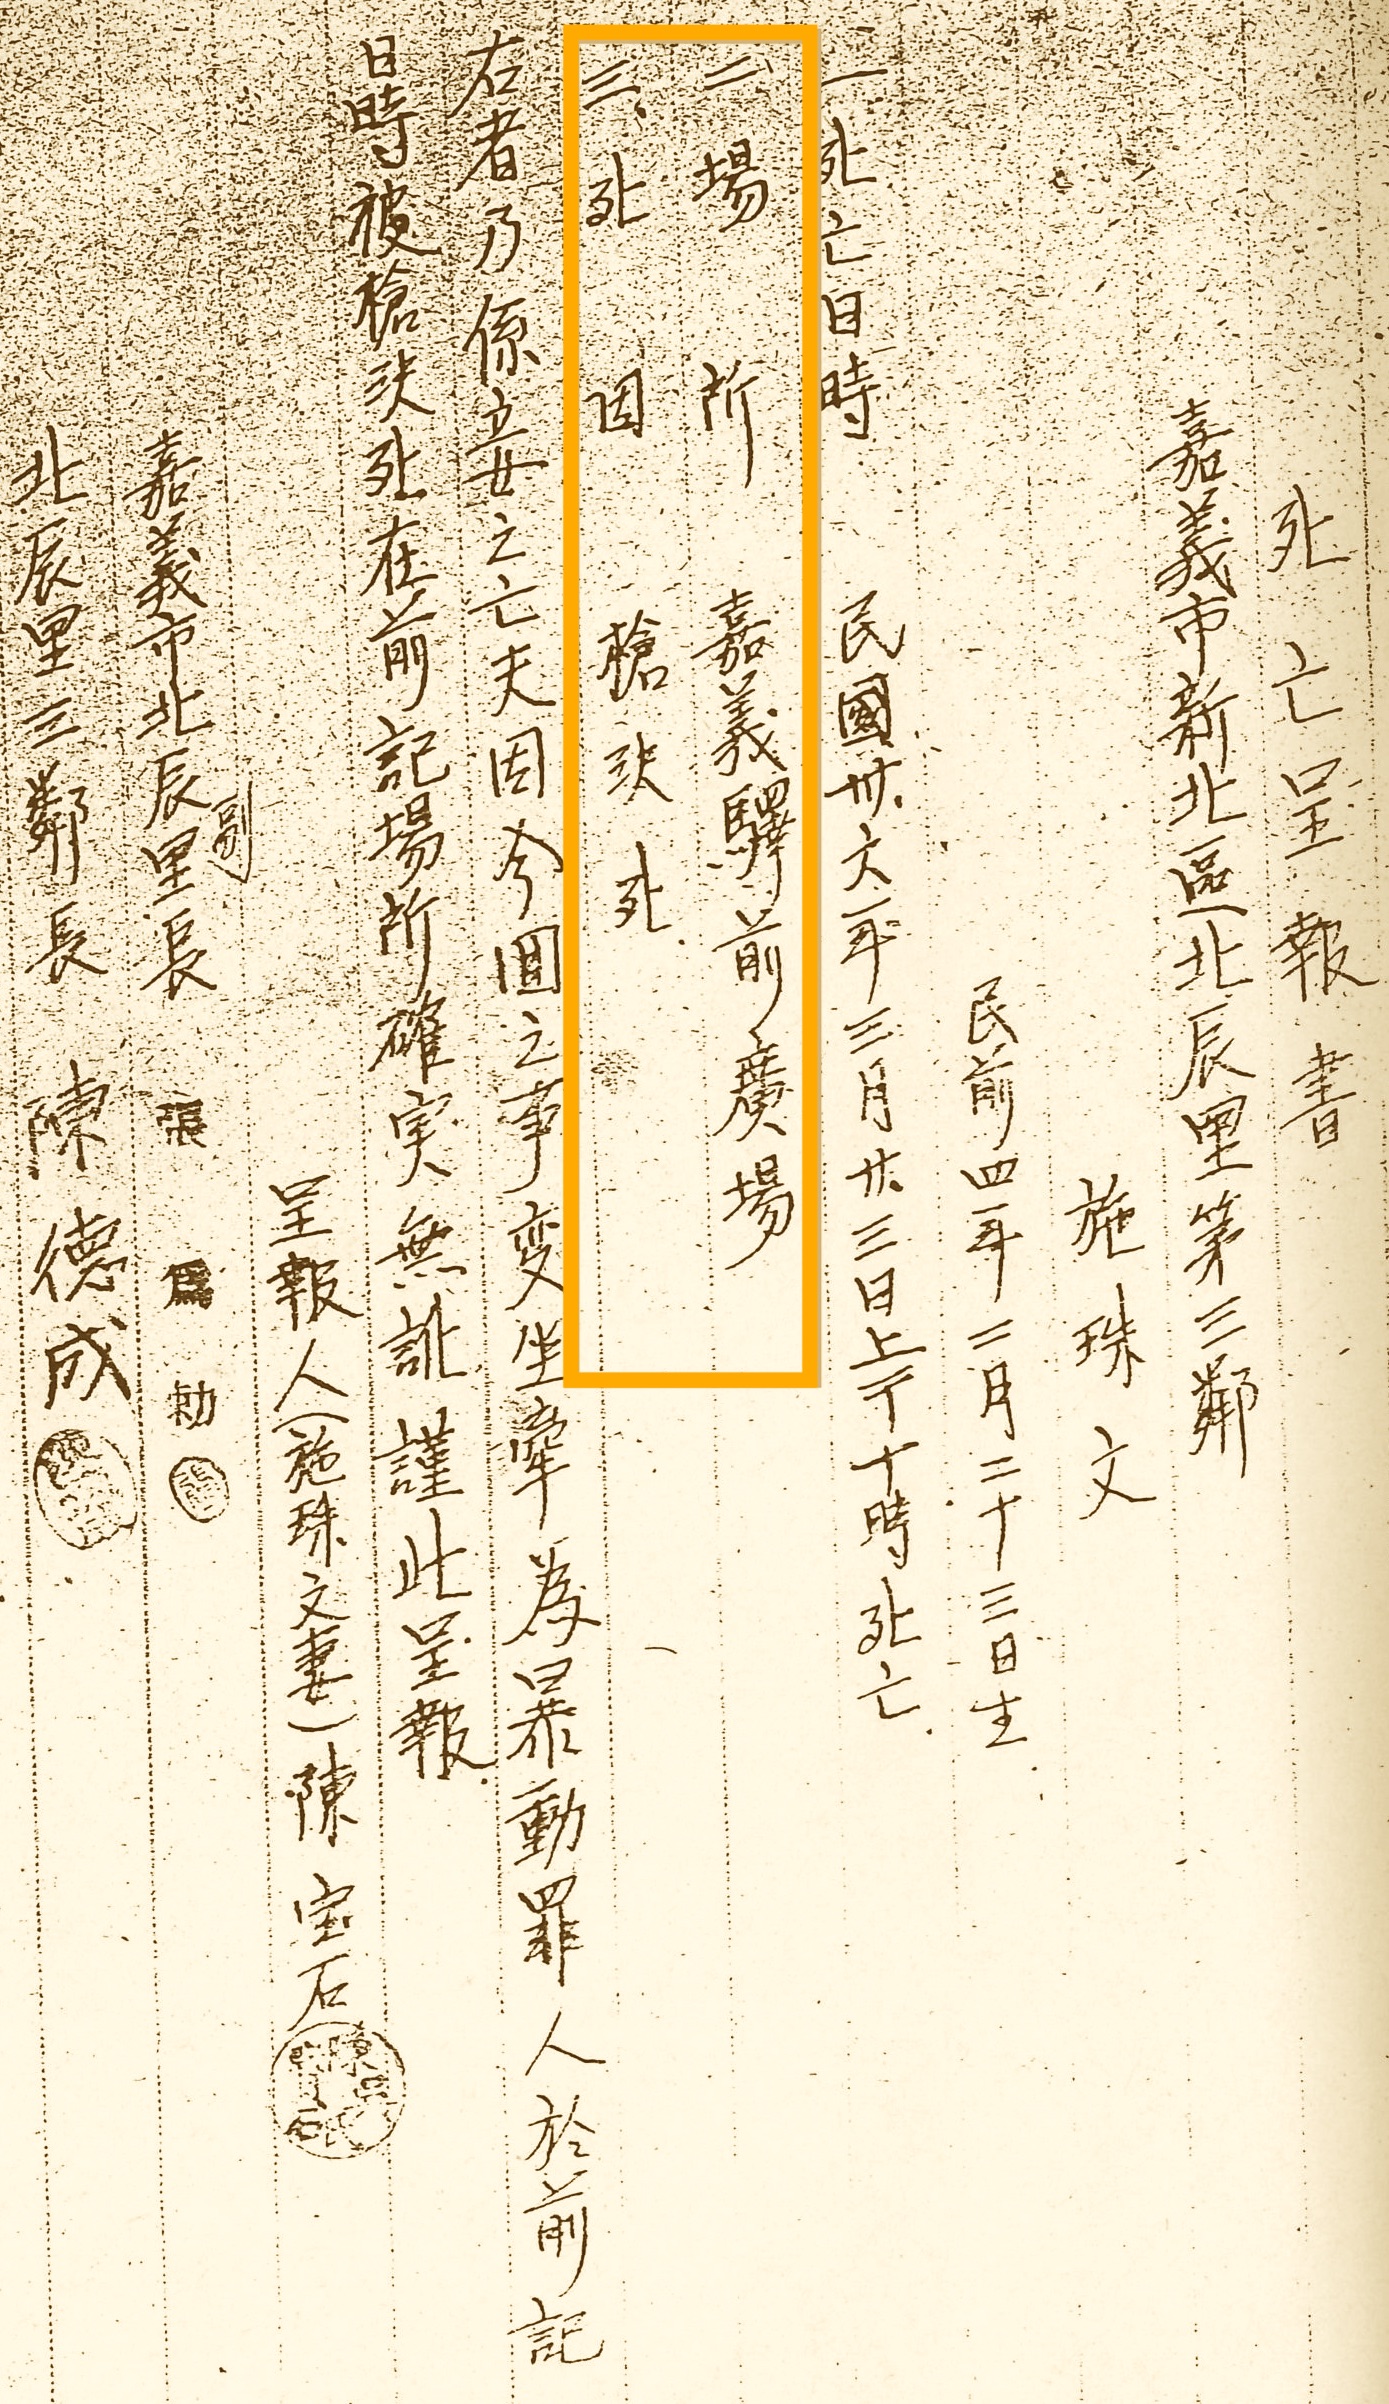 死亡呈報書
嘉義市新北區北辰里第三鄰
施珠文
民前四年二月二十三日生
一死亡日時 民國卅六年三月廿三日上下十時死亡
二場所 嘉義驛前廣場
三、死因 槍決死
右者乃係立世之亡夫因今回之事変坐牽為暴動罪人於前記
日時被槍決死在前記場所確実無訛謹此呈報
呈報人(施珠文妻)陳宝石
嘉義市北辰里副長 張為勅
北辰里三鄰長 陳德成